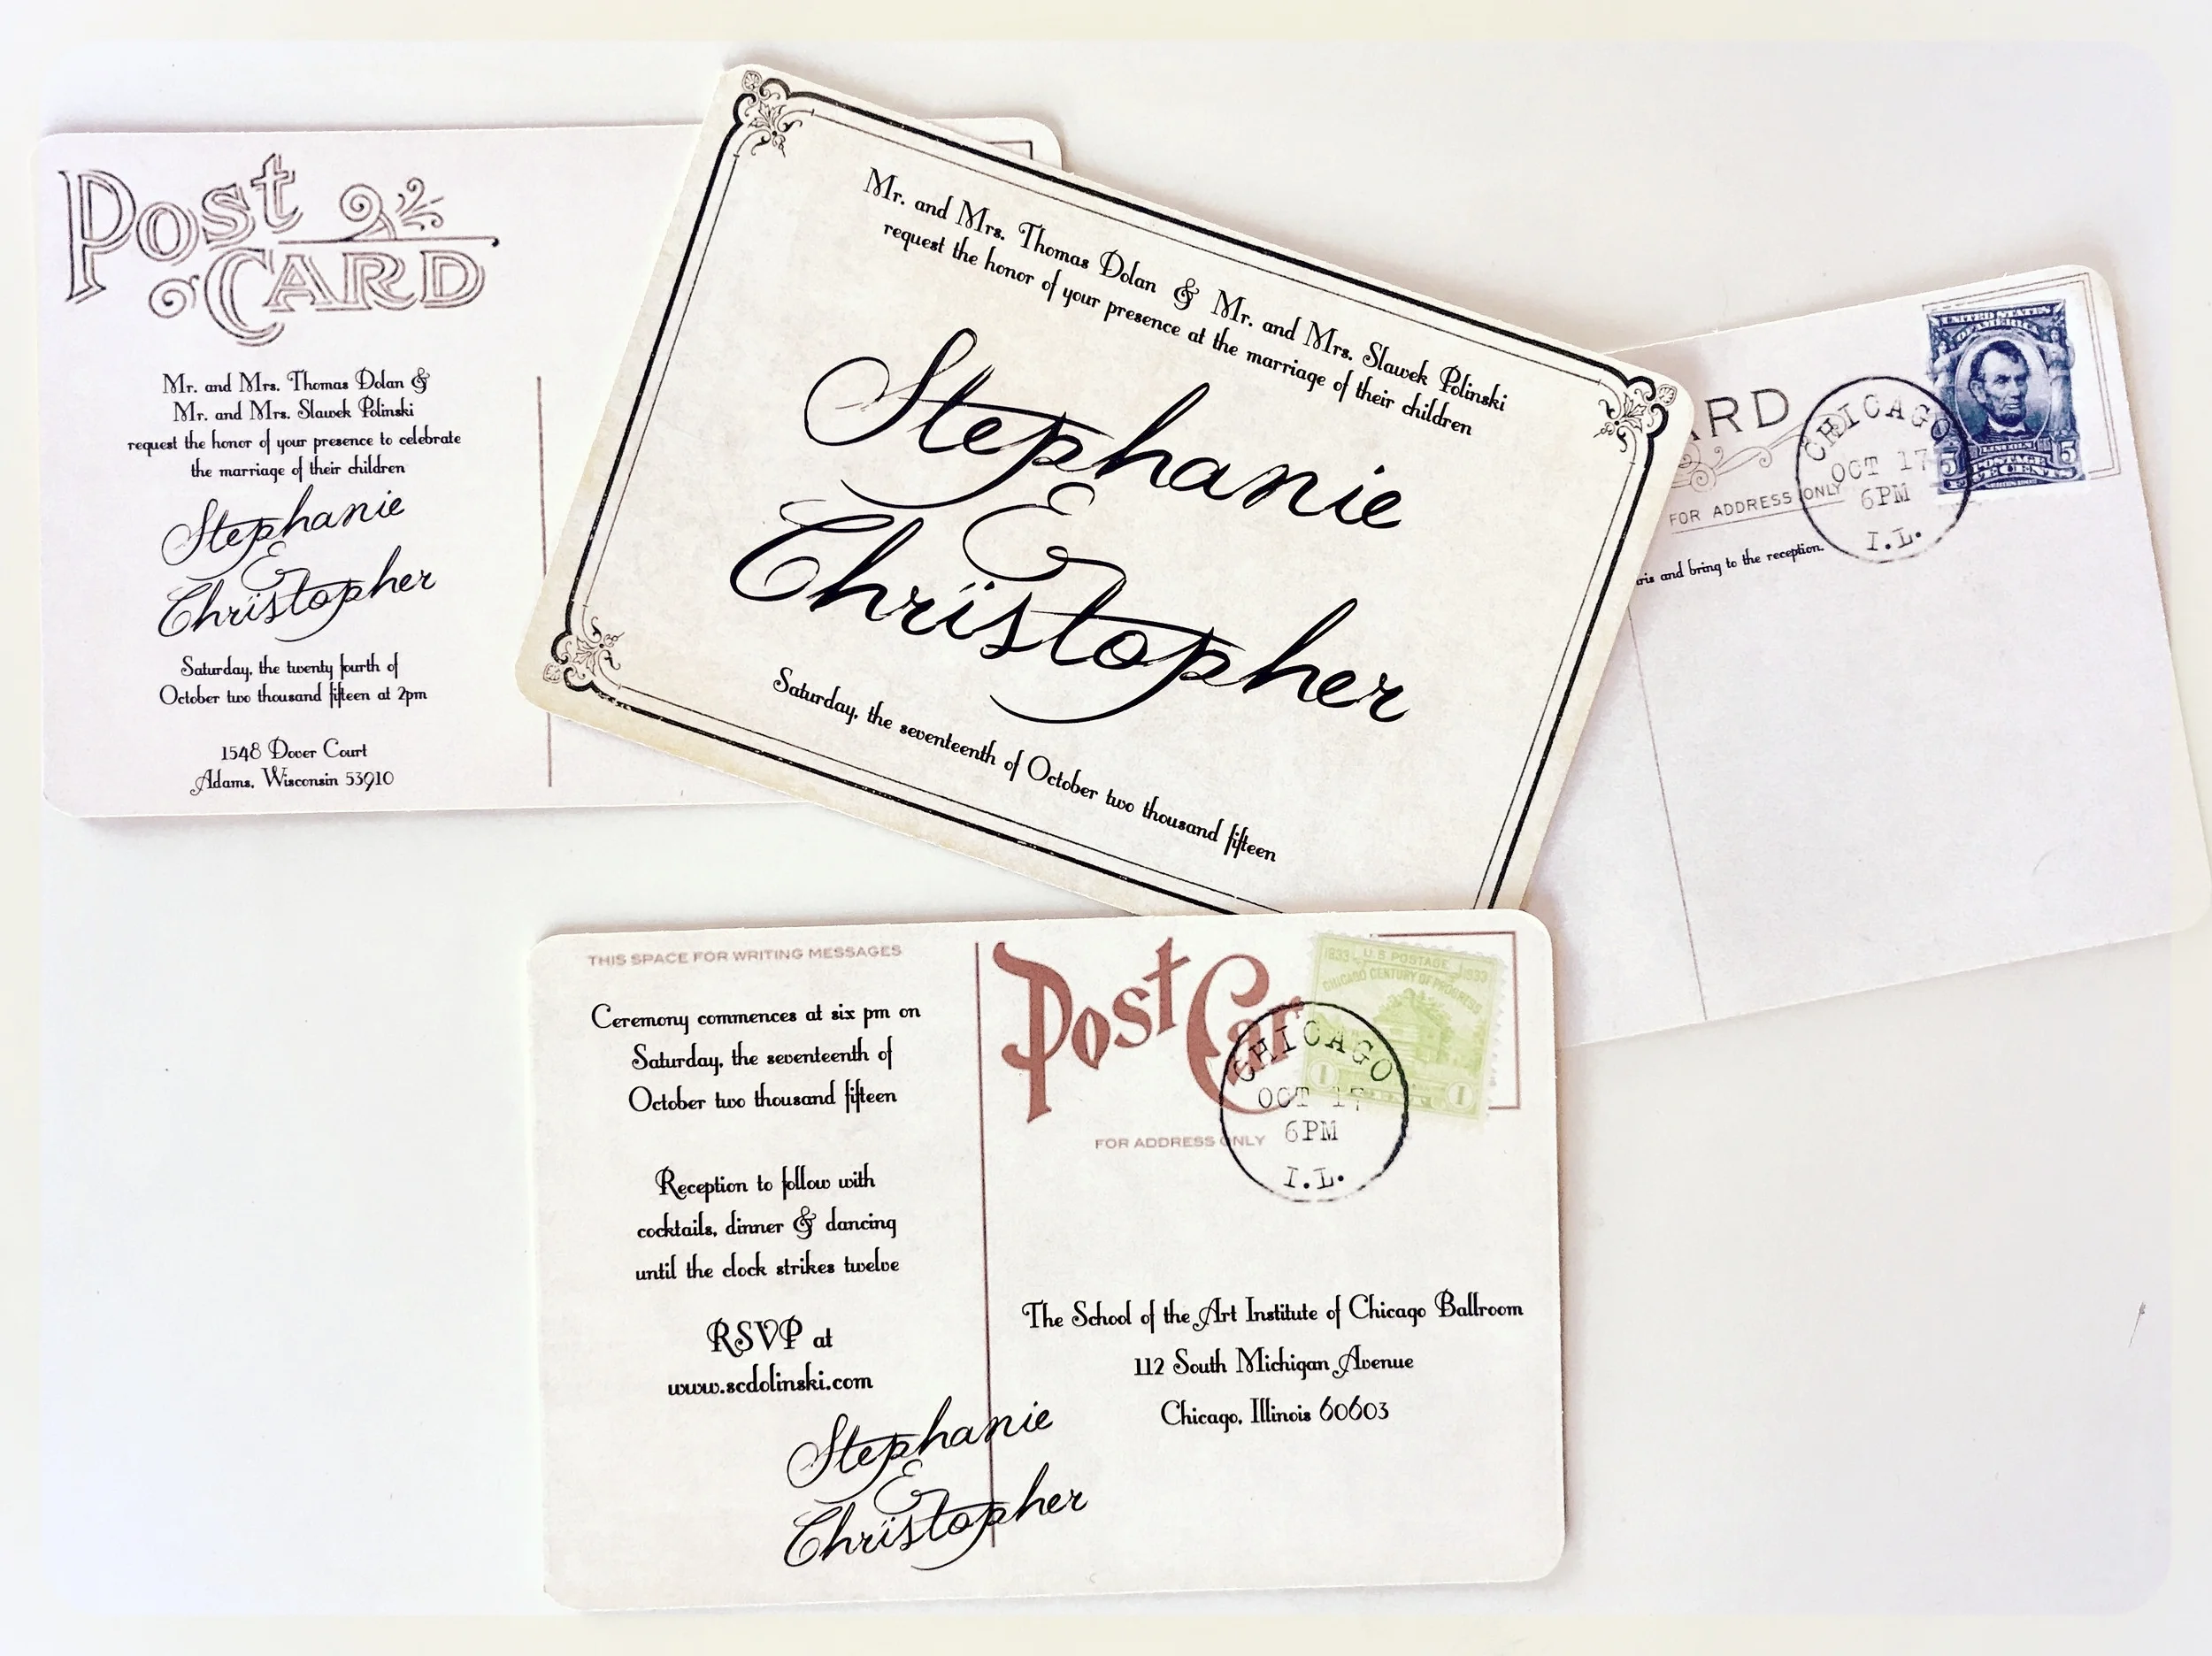 Post
CARD
Mr. and Mrs. Thomas Dolan &
Mr. and Mrs. Slawek Polinski
request the honor of your presence to celebrate
the marriage of their children
Stephanie
&
Christopher
Saturday, the twenty fourth of
October two thousand fifteen at 2pm
1548 Dover Court
Adams, Wisconsin 53910
Mr. and Mrs. Thomas Dolan & Mr. and Mrs. Slawek Polinski
request the honor of your presence at the marriage of their children
Stephanie
&
Christopher
Saturday, the seventeenth of October two thousand fifteen
ARD
FOR ADDRESS ONLY
and bring to the reception.
CHICAGO
OCT 17
6PM
I.L.
UNITED STATES
OF AMERICA
5 5
POSTAGE
THIS SPACE FOR WRITING MESSAGES
Ceremony commences at six pm on
Saturday, the seventeenth of
October two thousand fifteen
Reception to follow with
cocktails, dinner & dancing
until the clock strikes twelve
RSVP at
www.scdolinski.com
Stephanie
&
Christopher
Post Car
FOR ADDRESS ONLY
CHICAGO
OCT 17
6PM
I.L.
1833 U.S. POSTAGE 1933
CHICAGO CENTURY OF PROGRESS
1 CENT 1
The School of the Art Institute of Chicago Ballroom
112 South Michigan Avenue
Chicago, Illinois 60603